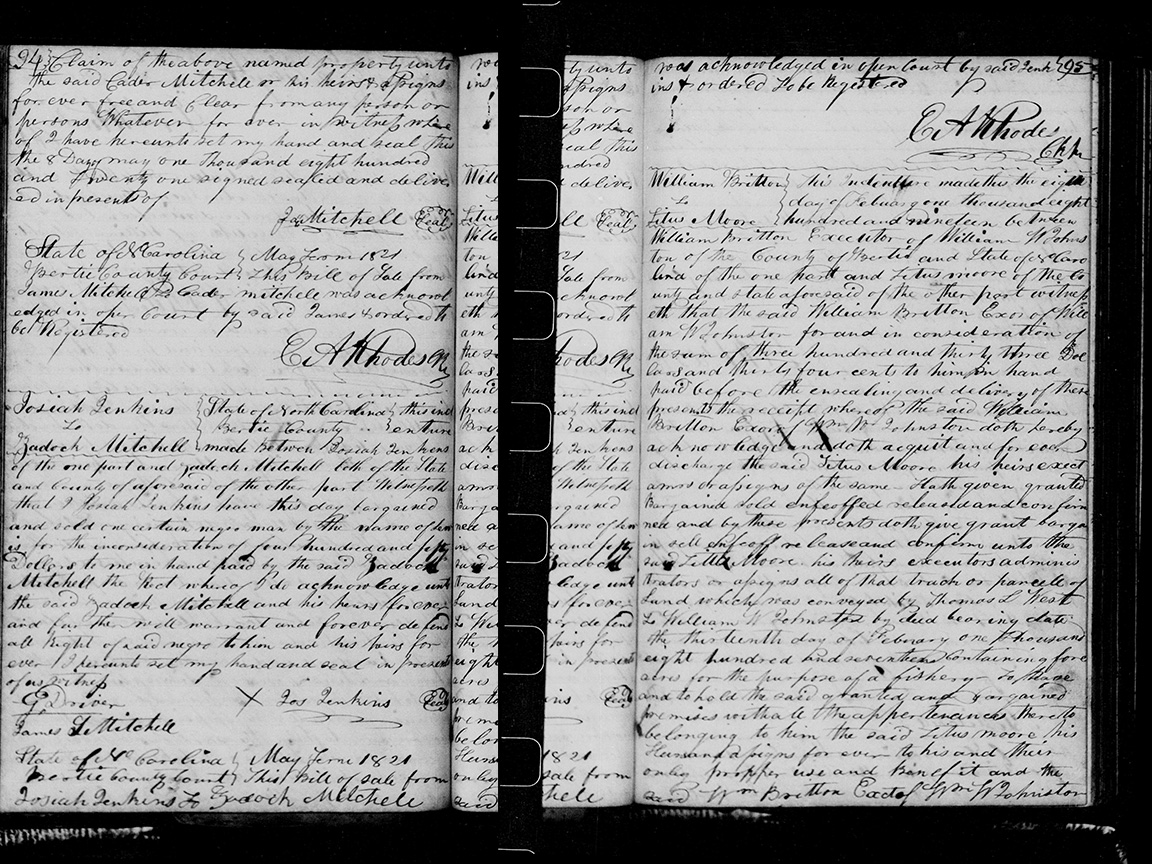 94 Claim of the above named property unto
the said Cader Mitchell or his heirs & assigns
for ever free and Clear from any person or
persons Whatever for ever in witness where
of I have hereunto set my hand and seal this
the 8 Day of may one thousand eight hundred
and twenty one signed sealed and deliver
ed in presents of
Jas Mitchell Seal
State of N Carolina } May Term 1821
Bertie County Court } This Bill of Sale from
James Mitchell To Cader mitchell was acknowl
edged in open Court by said James & ordered to
be Registered
E A Rhodes
Josiah Jenkins } State of North Carolina } this ind
To } Bertie County } enture
Zadock Mitchell } made between Josiah Jenkins
of the one part and Zadock Mitchell both of the State
and County of aforesaid of the other part Witnesseth
that I Josiah Jenkins have this day bargained
and sold one certain negro man by the name of
for the inconsideration of four hundred and fifty
Dollers to me in hand paid by the said Zadock
Mitchell the Rect whereof I do acknowledge unto
the said Zadock Mitchell and his heirs for ever
and for the well warrant and forever defend
all Right of said negro to him and his hirs for
ever I hereunto set my hand and seal in presents
of us witness
G Driver X Jos Jenkins Seal
James S Mitchell
State of N Carolina } May Term 1821
Bertie County Court } This bill of Sale from
Josiah Jenkins To Zadock Mitchell
was acknowledged in open Court by said Jenk 95
ins & ordered to be Registered
E A Rhodes
Clk
William Britton } this Indenture made this the eight
To } day of Febuary one thousand eight
Litus Moore } hundred and nineteen between
William Britton Executor of William W Johns
ton of the County of Bertie and State of N Caro
lina of the one part and Litus moore of the Co
unty and state aforesaid of the other part witness
eth that the said William Britton Exor of Willi
am W Johnston for and in consideration of
the sum of three hundred and thirty three Dol
lars and thirty four cents to him in hand
paid before the ensealing and delivery of these
presents the receipt whereof the said William
Britton Exor of Wm W Johnston doth hereby
acknowledge and doth acquit and for ever
discharge the said Litus Moore his heirs exect
amrs or assigns of the same Hath given granted
Bargained sold enfeoffed released and confirm
ned and by these presents doth give grant barga
in sell enfeoff release and confirm unto the
said Litus Moore his heirs executors adminis
trators or assigns all of that track or parcell of
Land which was conveyed by Thomas L West
To William W Johnston by deed bearing date
the thirteenth day of Febrary one thousand
eight hundred and seventeen Containing fore
acres for the purpose of a fishery To have
and to hold the said granted and bargained
premises with all the appertenances thereto
belonging to him the said Litus moore his
Heirs and assigns for ever to his and their
only propper use and Benefit and the
said Wm Britton Exct of Wm W Johnston